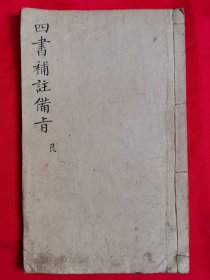 四書補註備旨
良